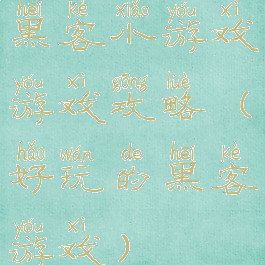 hēi kè xiǎo yóu xì
黑客小游戏
yóu xì gōng lüè
游戏攻略（
hǎo wán de hēi kè
好玩的黑客
yóu xì
游戏）